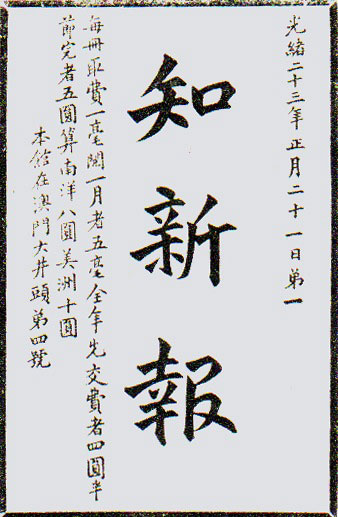 光緒二十三年正月二十一日第一
知新報
每冊取費一毫閱一月者五毫全年先交費者四圓半
節完者五圓算南洋八圓美洲十圓
本館在澳門大井頭第四號